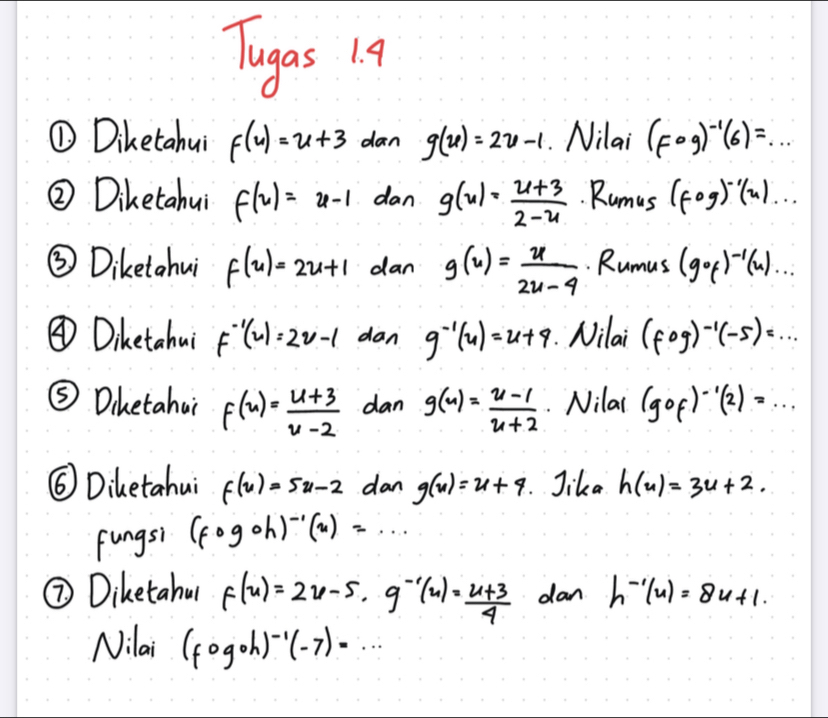 Tugas 1.4
① Diketahui f(x) = x+3 dan g(x) = 2x-1. Nilai (fog)⁻¹(6) = ...
② Diketahui f(x) = x-1 dan g(x) = (x+3)/(2-x). Rumus (fog)⁻¹(x)...
③ Diketahui f(x) = 2x+1 dan g(x) = x/(2x-4). Rumus (gof)⁻¹(x)...
④ Diketahui f⁻¹(x) = 2x-1 dan g⁻¹(x) = x+4. Nilai (fog)⁻¹(-5) = ...
⑤ Diketahui f(x) = (x+3)/(x-2) dan g(x) = (x-1)/(x+2). Nilai (gof)⁻¹(2) = ...
⑥ Diketahui f(x) = 5x-2 dan g(x) = x+4. Jika h(x) = 3x+2.
fungsi (fogoh)⁻¹(x) = ...
⑦ Diketahui f(x) = 2x-5, g⁻¹(x) = (x+3)/4 dan h⁻¹(x) = 8x+1.
Nilai (fogoh)⁻¹(-7) = ...